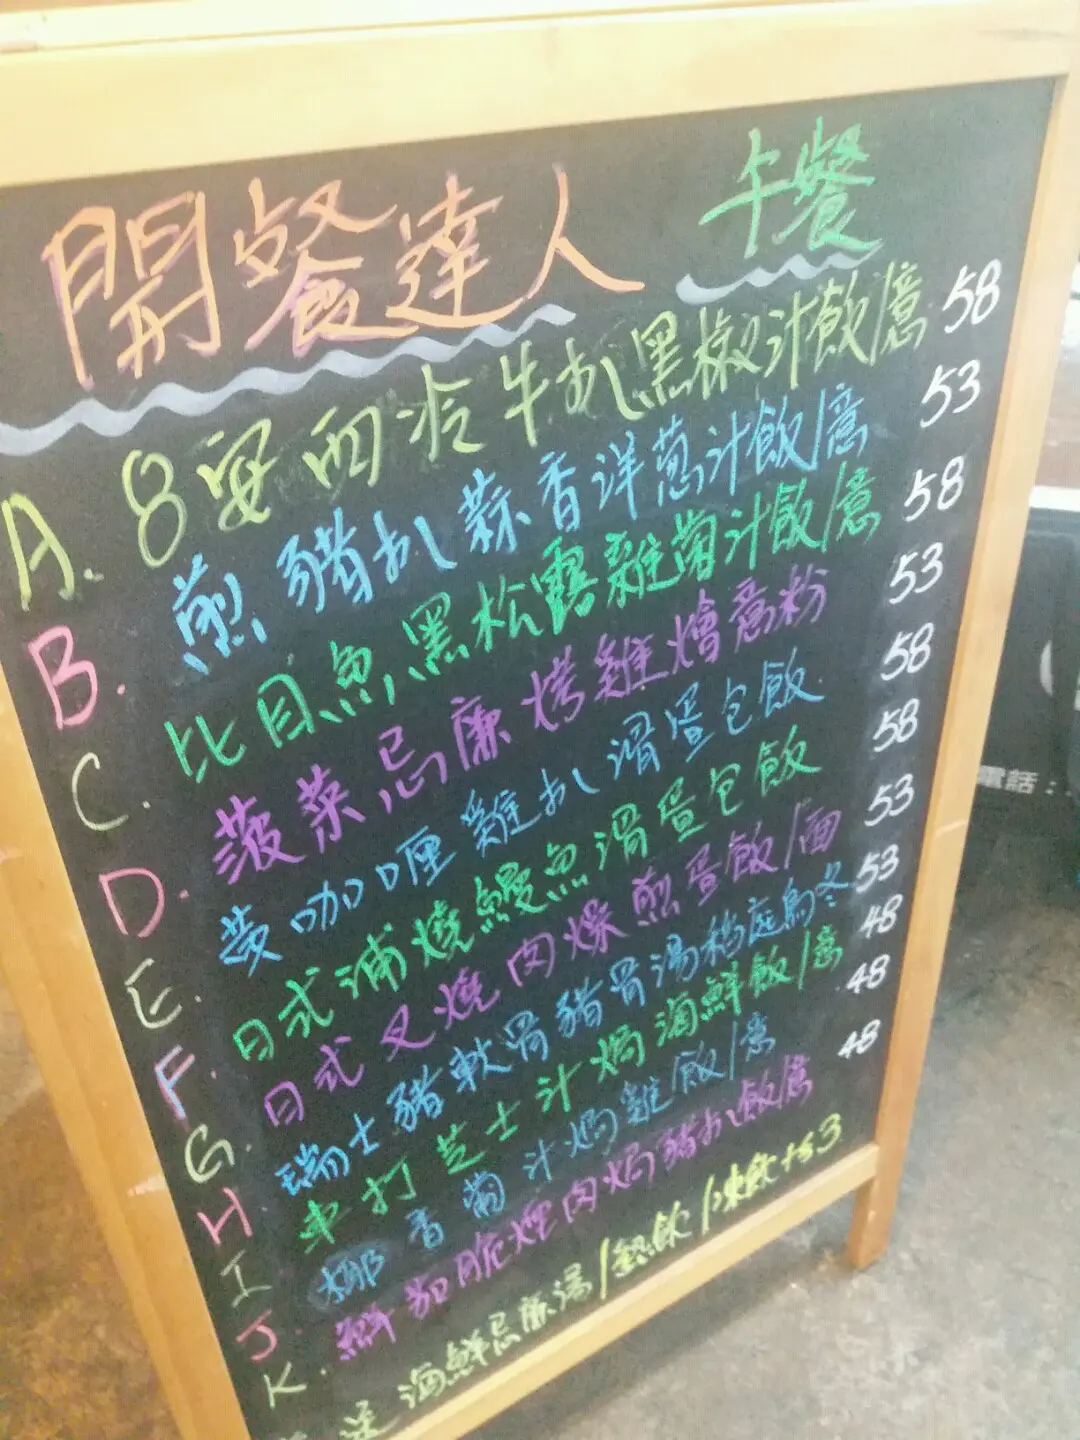 開餐達人 午餐
A. 8安西冷牛扒黑椒汁飯/意 58
B. 煎豬扒蒜香洋葱汁飯/意 53
C. 比目魚黑松露雞菌汁飯/意 58
D. 菠菜忌廉烤雞燴意粉 53
E. 黃咖喱雞扒滑蛋包飯 58
F. 日式浦燒鰻魚滑蛋包飯 58
G. 日式叉燒肉燥煎蛋飯/面 53
H. 瑞士豬軟骨豬骨湯稻庭烏冬 53
I. 車打芝士汁焗海鮮飯/意 48
J. 椰香葡汁焗雞飯/意 48
K. 鮮茄脆煙肉焗豬扒飯/意 48
送 海鮮忌廉湯/熱飲/凍飲+$3
電話: